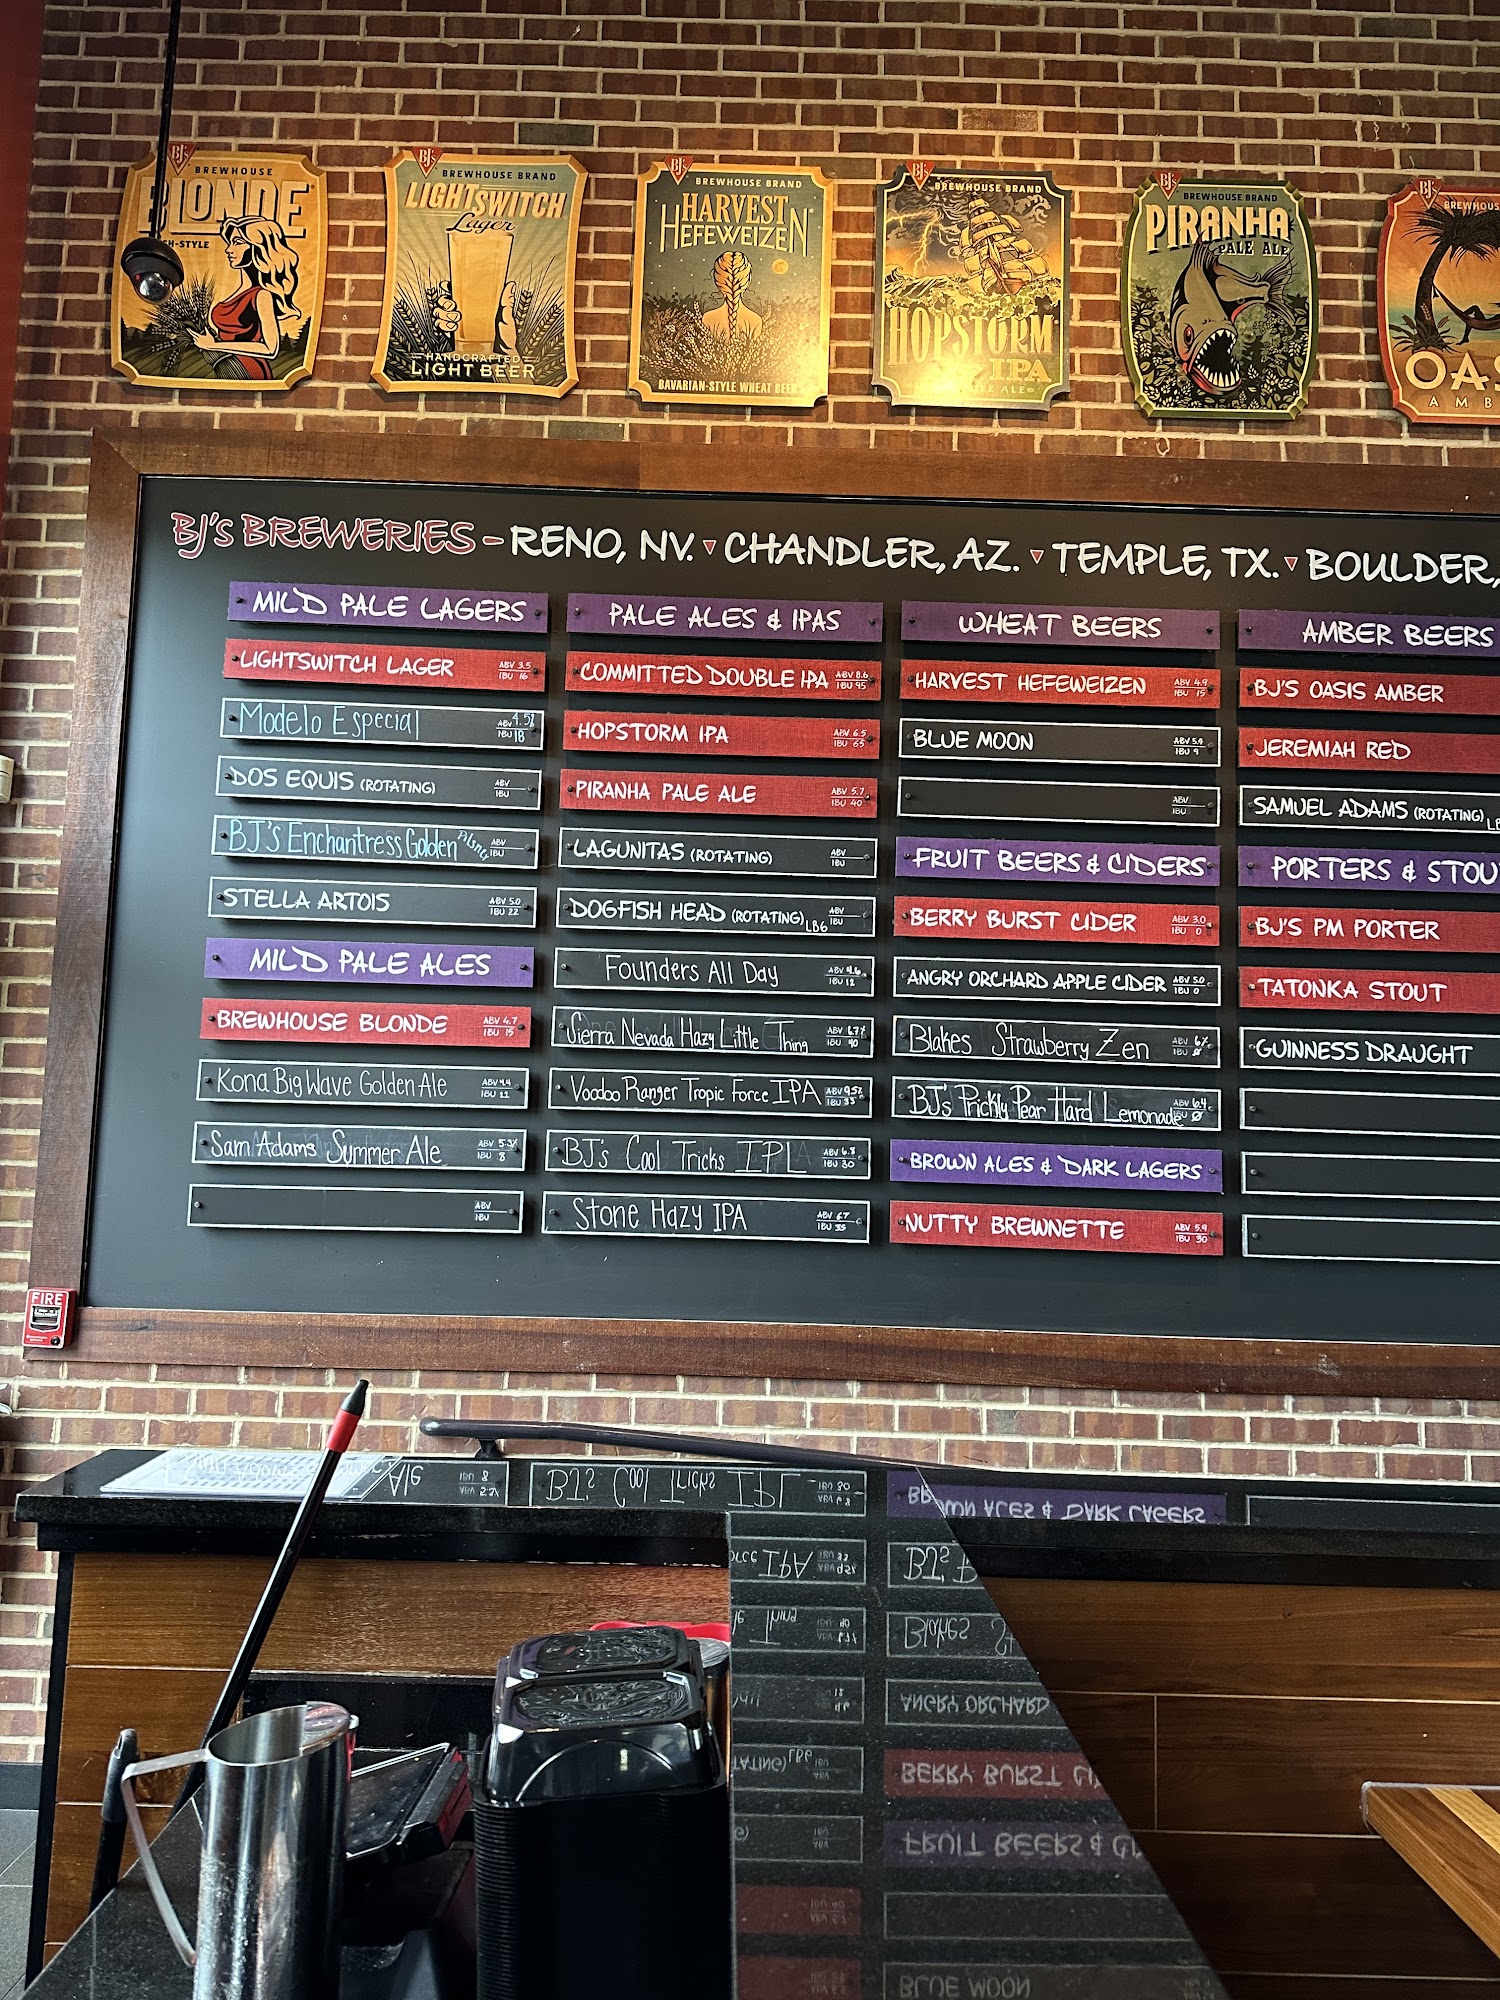 BJ's
BREWHOUSE
BLONDE
BJ's
BREWHOUSE BRAND
LIGHTSWITCH
Lager
HANDCRAFTED
LIGHT BEER
BJ's
BREWHOUSE BRAND
HARVEST
HEFEWEIZEN
BAVARIAN-STYLE WHEAT BEER
BJ's
BREWHOUSE BRAND
HOPSTORM
IPA
BJ's
BREWHOUSE BRAND
PIRANHA
PALE ALE
BJ's
OAS
AMB
BJ's BREWERIES - RENO, NV. CHANDLER, AZ. TEMPLE, TX. BOULDER,
MILD PALE LAGERS
LIGHTSWITCH LAGER ABV 3.5 IBU 16
Modelo Especial ABV 4.5% IBU 18
DOS EQUIS (ROTATING) ABV IBU
BJ's Enchantress Golden Pilsner ABV IBU
STELLA ARTOIS ABV 5.0 IBU 22
MILD PALE ALES
BREWHOUSE BLONDE ABV 4.7 IBU 15
Kona Big Wave Golden Ale ABV 4.4 IBU 11
Sam Adams Summer Ale ABV 5.3% IBU 8
ABV IBU
PALE ALES & IPAS
COMMITTED DOUBLE IPA ABV 8.6 IBU 95
HOPSTORM IPA ABV 6.5 IBU 65
PIRANHA PALE ALE ABV 5.7 IBU 40
LAGUNITAS (ROTATING) ABV IBU
DOGFISH HEAD (ROTATING) LB6 ABV IBU
Founders All Day ABV 4.6 IBU 12
Sierra Nevada Hazy Little Thing ABV 6.7% IBU 40
Voodoo Ranger Tropic Force IPA ABV 9.5% IBU 33
BJ's Cool Tricks IPL ABV 6.8 IBU 30
Stone Hazy IPA ABV 6.7 IBU 35
WHEAT BEERS
HARVEST HEFEWEIZEN ABV 4.9 IBU 15
BLUE MOON ABV 5.4 IBU 9
ABV IBU
FRUIT BEERS & CIDERS
BERRY BURST CIDER ABV 3.0 IBU 0
ANGRY ORCHARD APPLE CIDER ABV 5.0 IBU 0
Blakes Strawberry Zen ABV 6% IBU Ø
BJ's Prickly Pear Hard Lemonade ABV 6.4 IBU Ø
BROWN ALES & DARK LAGERS
NUTTY BREWNETTE ABV 5.9 IBU 30
AMBER BEERS
BJ'S OASIS AMBER
JEREMIAH RED
SAMUEL ADAMS (ROTATING)
PORTERS & STOU
BJ'S PM PORTER
TATONKA STOUT
GUINNESS DRAUGHT
FIRE